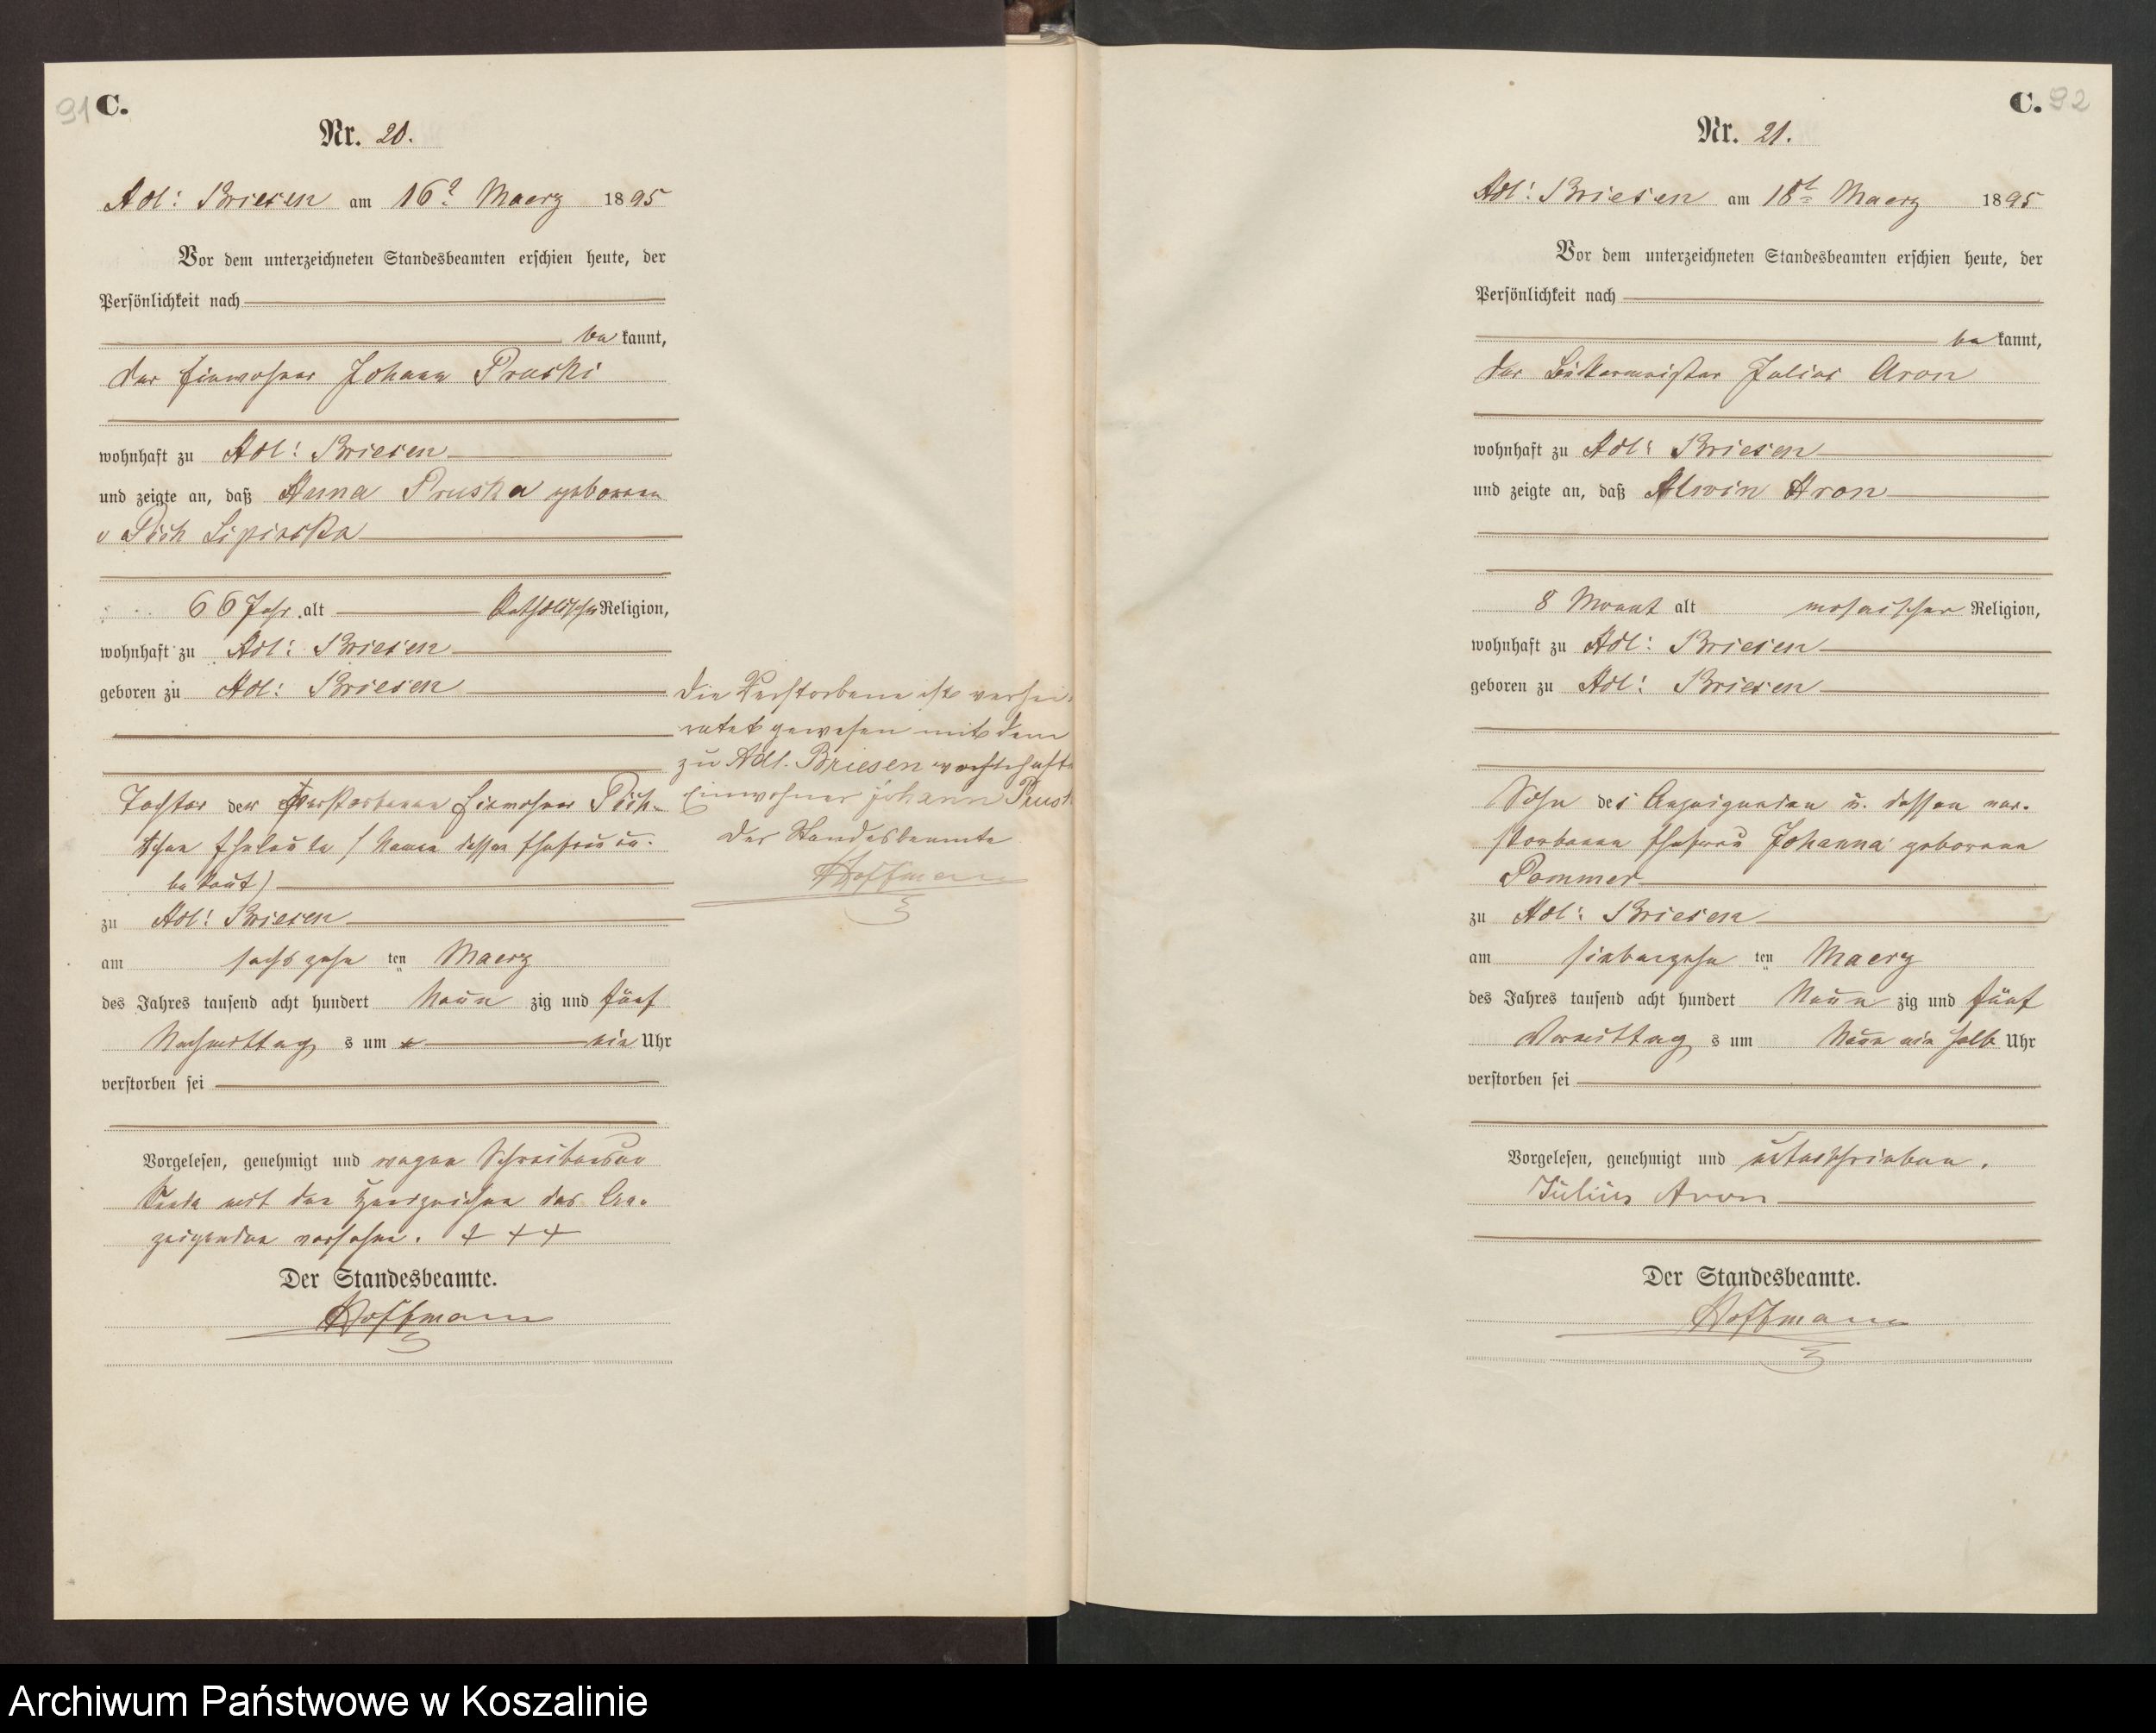 91 C.
Nr. 20.
Adl: Briesen am 16t Maerz 1895
Vor dem unterzeichneten Standesbeamten erschien heute, der
Persönlichkeit nach
be kannt,
der Einwohner Johann Pruski
wohnhaft zu Adl: Briesen
und zeigte an, daß Anna Pruska geborene
v Pich Lipinska
66 Jahr alt katholischer Religion,
wohnhaft zu Adl: Briesen
geboren zu Adl: Briesen
Tochter der verstorbenen Einwohner Pich-
schen Eheleute (Namen dessen Ehefrau un-
bekant)
zu Adl: Briesen
am sechszehn ten Maerz
des Jahres tausend acht hundert Neun zig und fünf
Nachmittag s um ein Uhr
verstorben sei
Vorgelesen, genehmigt und wegen Schreibensun
kunde mit den Handzeichen des An-
zeigenden versehen. + + +
Der Standesbeamte.
Hoffmann
Die Verstorbene ist verhei-
ratet gewesen mit dem
zu Adl. Briesen wohnhaften
Einwohner Johann Prusk
Der Standesbeamte
Hoffmann
C. 92
Nr. 21.
Adl: Briesen am 18t Maerz 1895
Vor dem unterzeichneten Standesbeamten erschien heute, der
Persönlichkeit nach
be kannt,
der Bäckermeister Julius Aron
wohnhaft zu Adl: Briesen
und zeigte an, daß Alwin Aron
8 Monat alt mosaischer Religion,
wohnhaft zu Adl: Briesen
geboren zu Adl: Briesen
Sohn des Anzeigenden u. dessen ver-
storbenen Ehefrau Johanna geborene
Pommer
zu Adl: Briesen
am siebenzehn ten Maerz
des Jahres tausend acht hundert Neun zig und fünf
Vormittag s um Neun ein halb Uhr
verstorben sei
Vorgelesen, genehmigt und unterschrieben.
Julius Aron
Der Standesbeamte.
Hoffmann
Archiwum Państwowe w Koszalinie